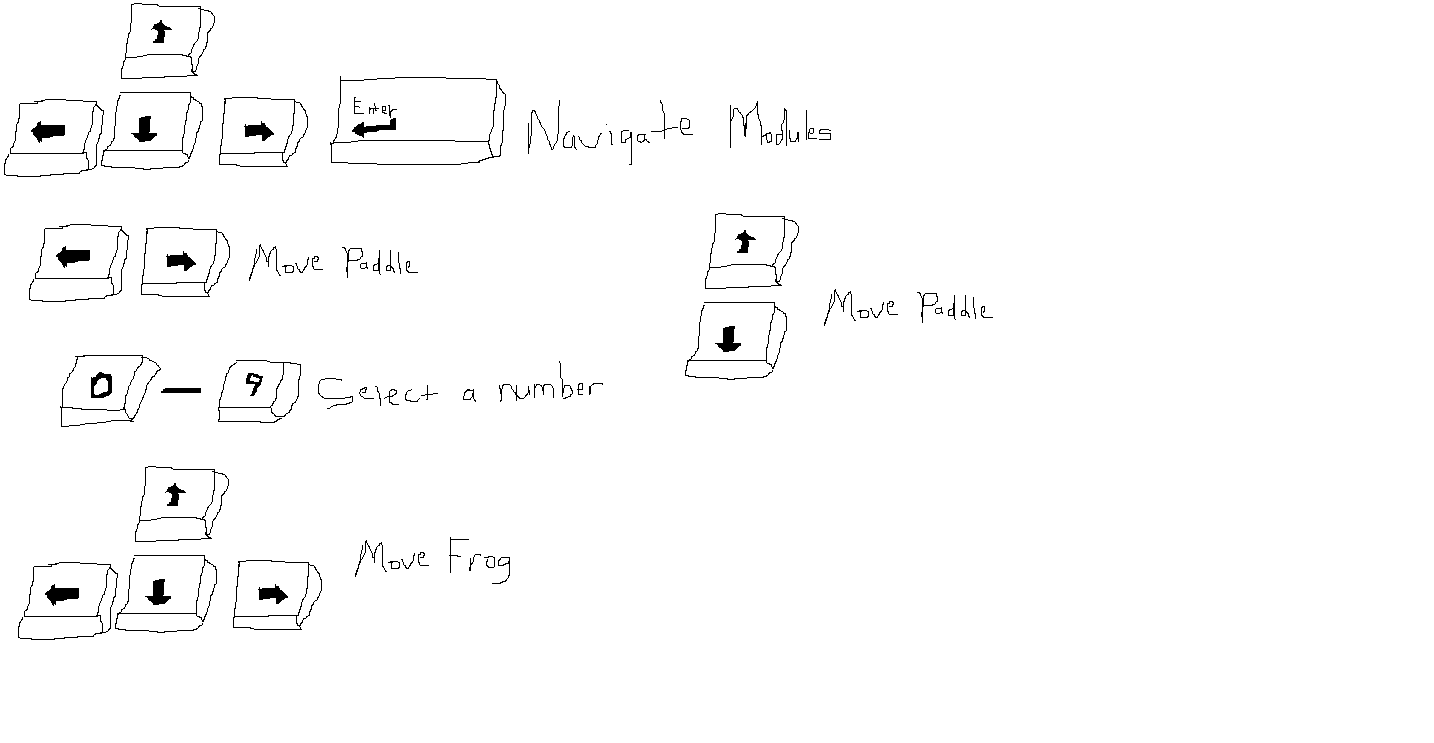 Enter
Navigate Modules
Move Paddle
Move Paddle
0 — 9 Select a number
Move Frog